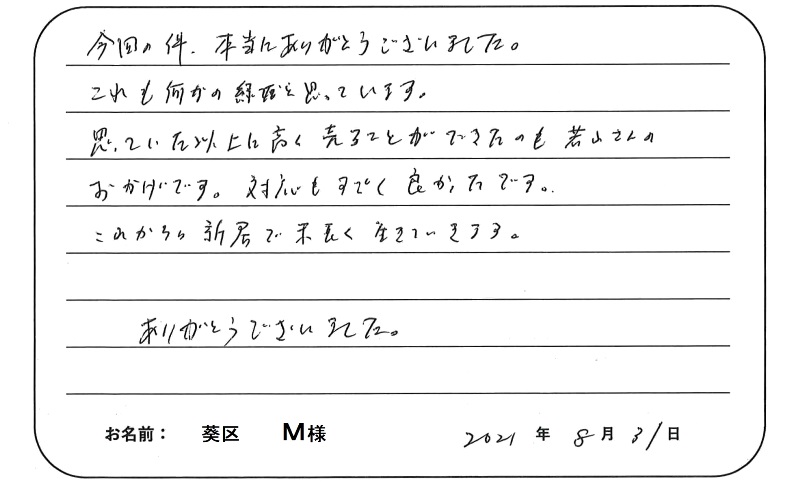 今回の件、本当にありがとうございました。
これも何かの縁だと思っています。
思っていた以上に高く売ることができたのも若山さんの
おかげです。対応もすごく良かったです。
これから新居で末長く生きていきます。
ありがとうございました。
お名前： 葵区 M様 2021年8月31日